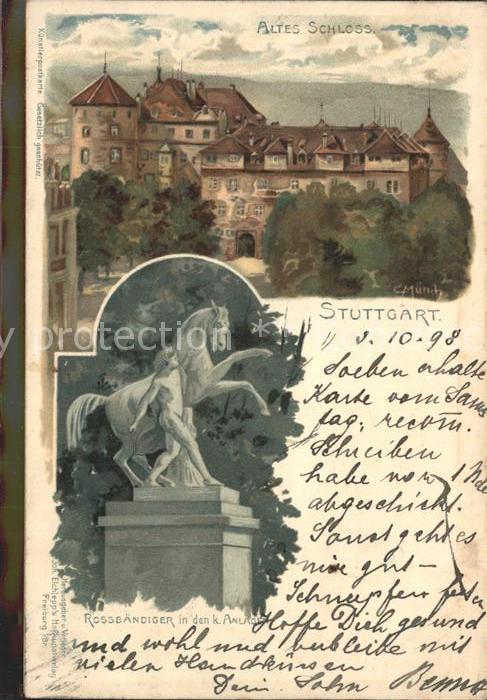 ALTES SCHLOSS.
Künstlerpostkarte. Gesetzlich geschützt.
C. Münch
STUTTGART.
3.10.98
Soeben erhalte
Karte vom Sams
tag, recom.
Schreiben
habe vor 1
abgeschickt.
Sonst geht es
mir gut –
Schnupfen
Hoffe Dich gesund
und wohl und verbleibe mit
vielen Handküssen
Dein Sohn Benno
ROSSBÄNDIGER in den K. ANLAGEN
Herausgeber u. Verleger
Freiburg i/B.
protection